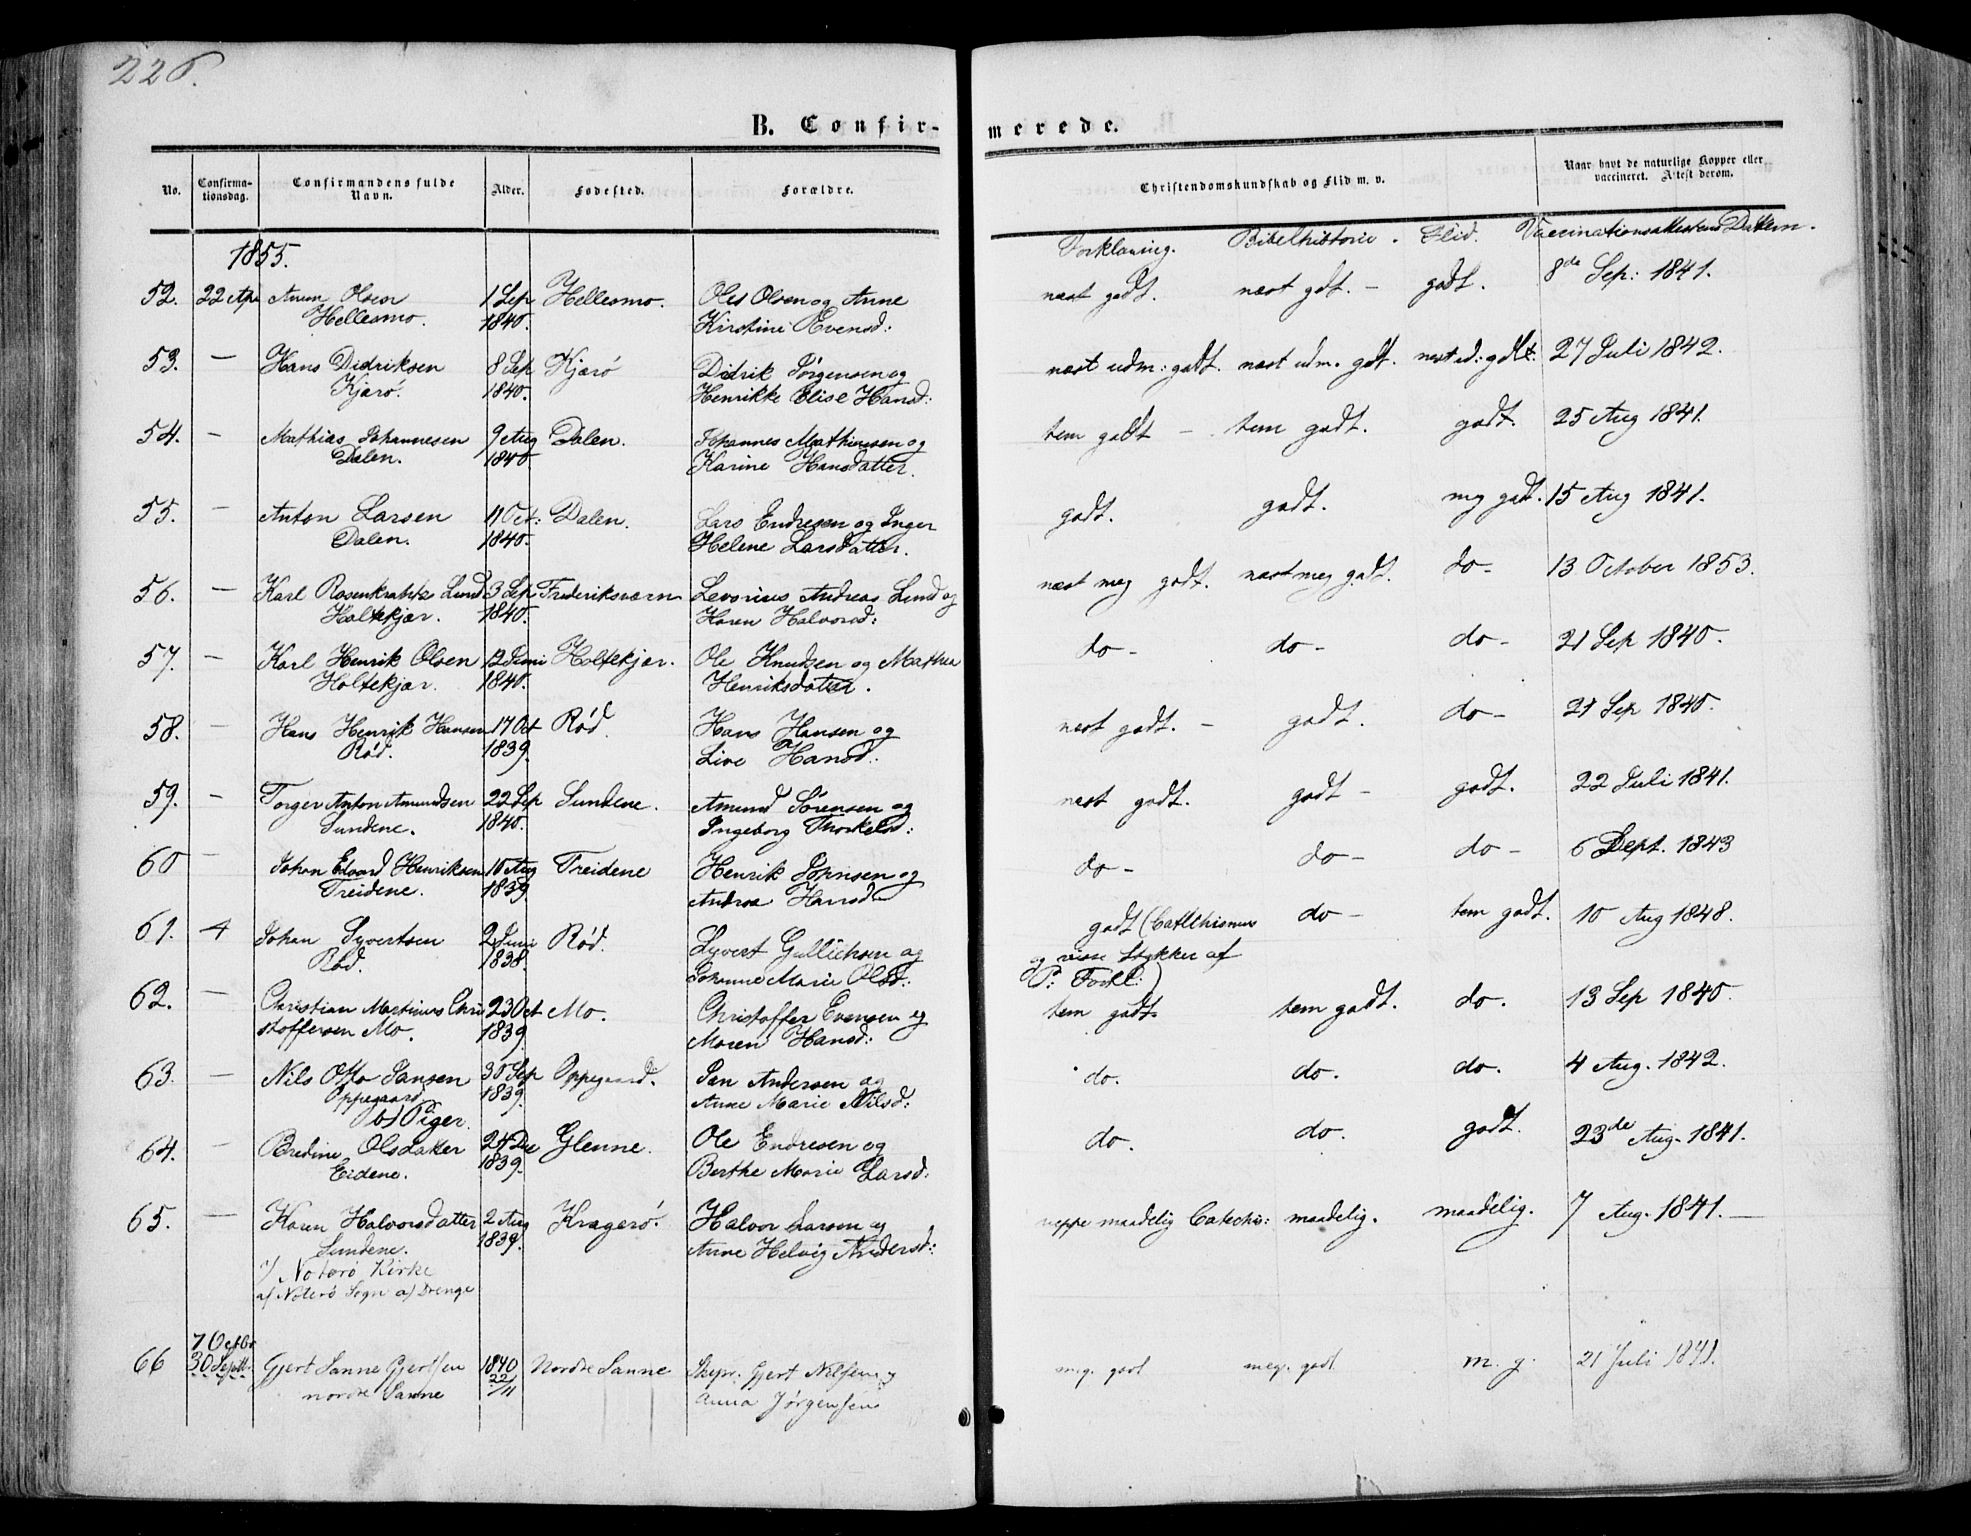 226.
B. Confir-
merede.
No.
Confirma-
tionsdag.
Confirmandens fulde
Navn.
Alder.
Fødested.
Forældre.
Christendomskundskab og Flid m. v.
Naar havt de naturlige Kopper eller
vaccineret. Attest derom.
1855.
Forklaring. Bibelhistorie. Flid. Datum.
52. 22 Apr Olsen 1 Sep Hellesmo. Ole Olsen og Anne næst godt. næst gdt. - godt. 8de Sep: 1841.
Hellesmo. 1840. Kirstine Evensd:
53. — Hans Didriksen 8 Sep Kjærø Didrik Jørgensen og næst udm: godt. næst udm. gdt. næst ud: godt. 27 Juli 1842.
Kjærø. 1840. Henrikke Elise Hansd:
54. - Mathias Johannesen 9 Aug Dalen. Johannes Mathiesen og tem godt - tem godt. godt. 25 Aug 1841.
Dalen. 1840 Karine Hansdatter.
55. - Anton Larsen 11 Oct: Dalen. Lars Endresen og Inger godt. godt. meg godt. 15 Aug 1841.
Dalen. 1840. Helene Larsdatter.
56. - Karl Rosenkrantz Lund 3 Sep Frideriksværn Andreas Lund og næst meg godt. næst meg godt. do- 13 October 1853.
Holtekjær. 1840. Karen Halvorsd:
57. - Karl Henrik Olsen 12 Juni Holtekjær. Ole Knudsen og Mathea do- do- do- 21 Sep 1840.
Holtekjær. 1840. Henriksdatter.
58. - Hans Henrik Hansen 17 Oct Rød. Hans Hansen og næst godt. - godt. do- 21 Sep 1840.
Rød. 1839. Live Hansd:
59. - Torger Anton Amundsen 22 Sep Sundene. Amund Sørensen og næst godt. godt - godt. 22 Juli 1841.
Sundene. 1840. Ingeborg Thorkelsd:
60 - Johan Edvard Henriksen 10 Aug Treidene Henrik og do- do- do- 6 Sept. 1843
Treidene. 1839 Andrea Hansd-
61. 4 Johan Syvertsen 2 Juni Rød. Syvert Gullichsen og godt (Catechismus do- tem godt. 10 Aug 1848.
Rød. 1838. Johanne Marie Olsd: og visse Stykker af
P: Forkl:)
62. - Christian Martinus Chri 23 Oct Mo. Christoffer Evensen og tem godt. tem godt. do. 13 Sep 1840.
stoffersen Mo. 1839. Maren Hansd:
63. - Nils Otto Jansen 30 Sep Oppegaard. Jan Andersen og do. do. do. 4 Aug. 1842.
Oppegaard 1839. Anne Marie Nilsd:
b) Piger.
64. - Bredine Olsdatter 24 Dec Glenne. Ole Endresen og do. do. godt. 23de Aug. 1841.
Eidene. 1839. Berthe Marie Larsd:
65. - Karen Halvorsdatter 2 Aug Kragerø. Halvor Larsen og neppe maadelig Catechis: maadelig. maadelig. 7 Aug. 1841. —
Sundene. 1839. Anne Helvig Andersd:
1) Noterø Kirke
a) Noterø Sogn a) Drenge
7 Octbr
66 30 Septbr. Gjert Sanne Gjertsen 1840 Nordre Sanne Skipr. Gjert Nilsen og meg. godt meg. godt m. g. 21 Juli 1841.
nordre Sanne 22/11 Anna Jørgensen